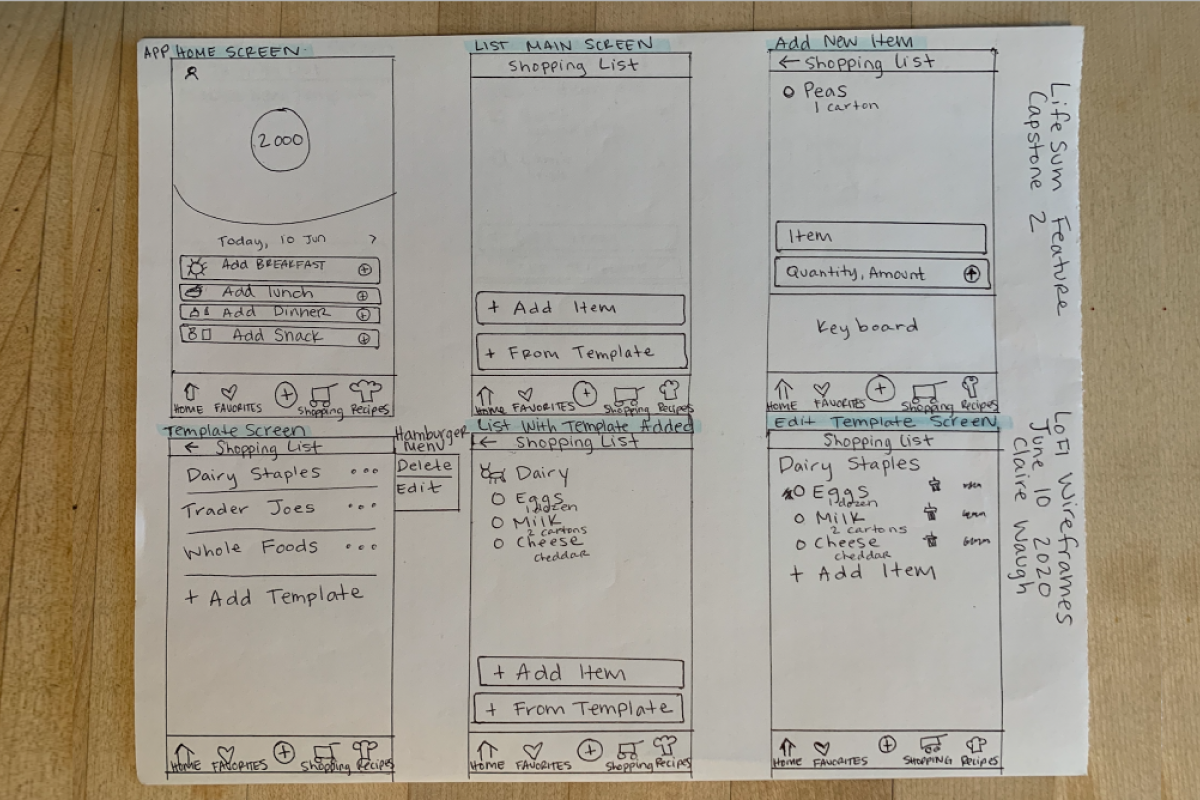 APP HOME SCREEN
2000
Today, 10 Jun >
Add BREAKFAST
Add lunch
Add Dinner
Add Snack
HOME FAVORITES + Shopping Recipes
LIST MAIN SCREEN
Shopping List
+ Add Item
+ From Template
Home FAVORITES + Shopping Recipes
Add New Item
← Shopping List
Peas
1 carton
Item
Quantity, Amount +
Keyboard
HOME FAVORITES + Shopping Recipes
Template Screen
← Shopping List
Dairy Staples ...
Trader Joes ...
Whole Foods ...
+ Add Template
HOME FAVORITES + Shopping Recipes
Hamburger
Menu
Delete
Edit
List With Template Added
← Shopping List
Dairy
Eggs
1 dozen
Milk
2 cartons
Cheese
cheddar
+ Add Item
+ From Template
Home FAVORITES + Shopping Recipes
Edit Template Screen
Shopping List
Dairy Staples
Eggs
1 dozen
Milk
2 cartons
Cheese
cheddar
+ Add Item
HOME FAVORITES + SHOPPING Recipes
Life Sum Feature
Capstone 2
LoFi Wireframes
June 10 2020
Claire Waugh